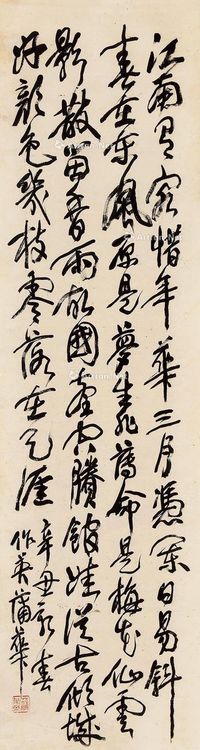 江南有客惜年華三月憑闌日易斜
春在東風原是夢生非薄命花仙雲
影散留香雨故國臺空賸館娃從古傾城
好顏色幾枝零落在天涯
辛丑春
作英蒲華